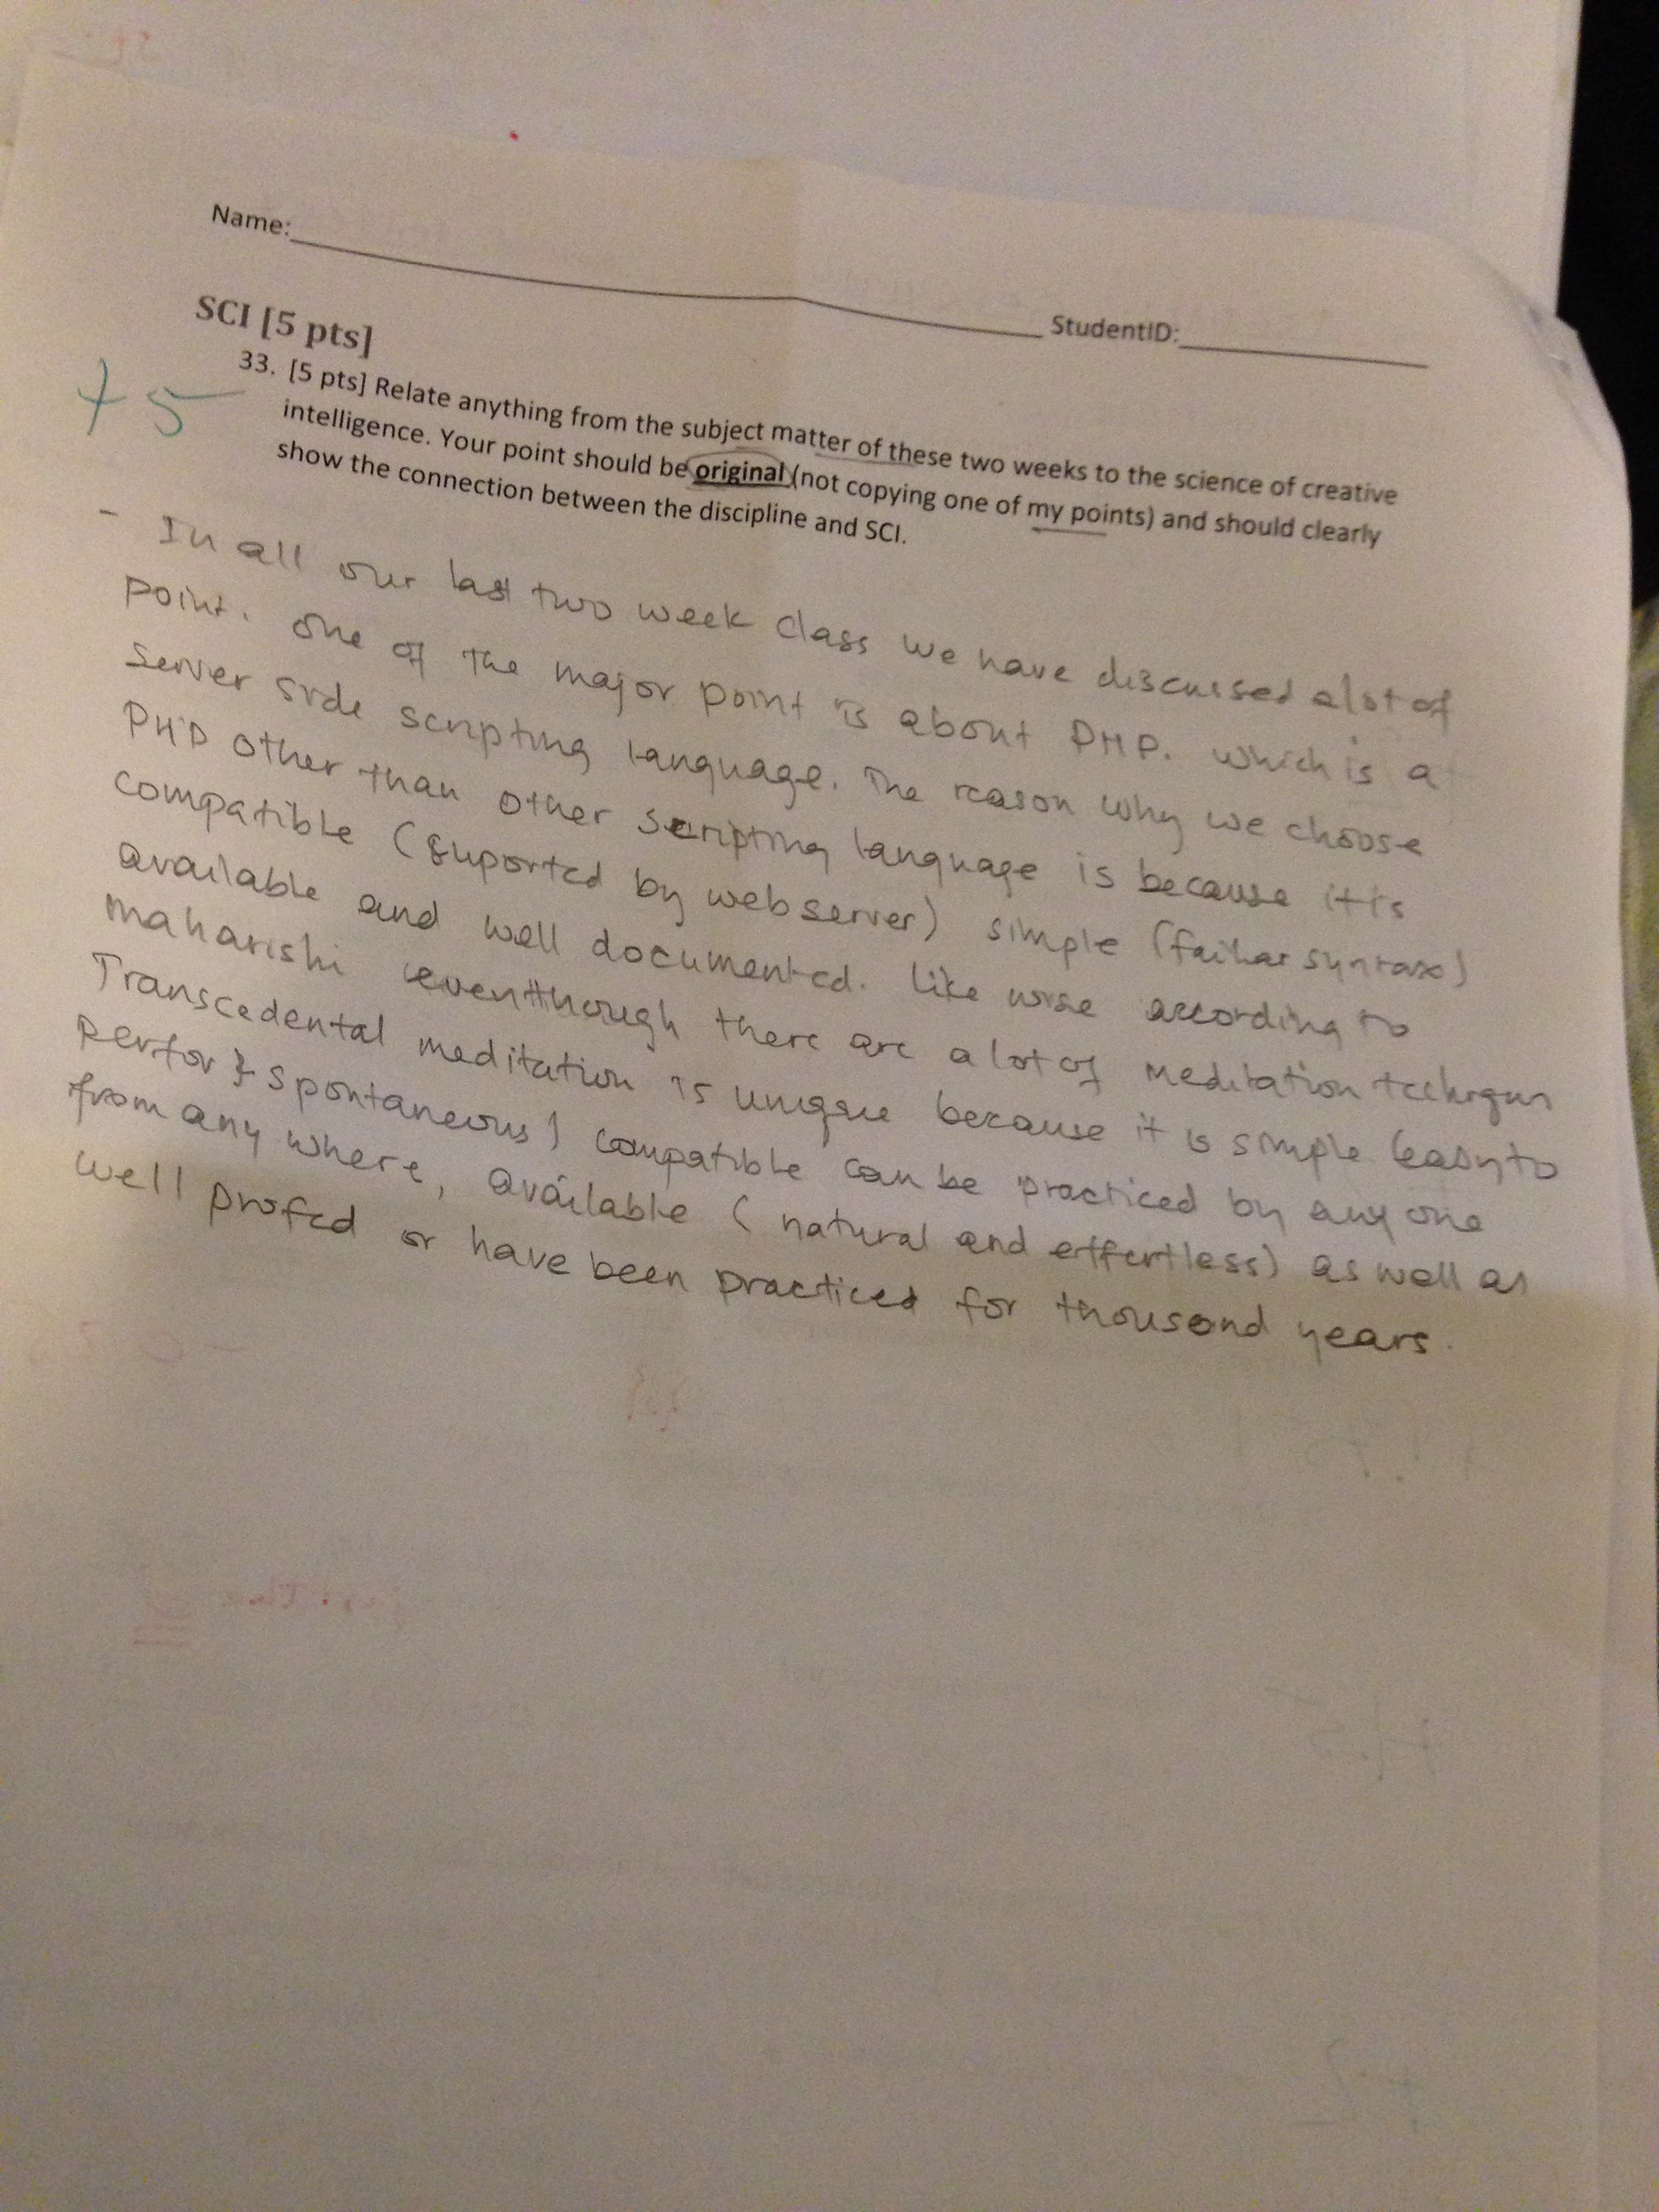 Name: StudentID:
SCI [5 pts]
+5
33. [5 pts] Relate anything from the subject matter of these two weeks to the science of creative
intelligence. Your point should be original (not copying one of my points) and should clearly
show the connection between the discipline and SCI.
- In all our last two week class we have discussed alot of
point. one of the major point is about PHP. which is a
server side scripting language. The reason why we choose
PHP other than other scripting language is because it's
compatible (suported by webserver) simple ( syntax)
available and well documented. like wise according to
maharishi eventhough there are a lot of meditation
Transcedental meditation is unique because it is simple (easy to
perfor } spontaneous) compatible can be practiced by any one
from any where, available (natural and effertless) as well as
well profed or have been practiced for thousand years.